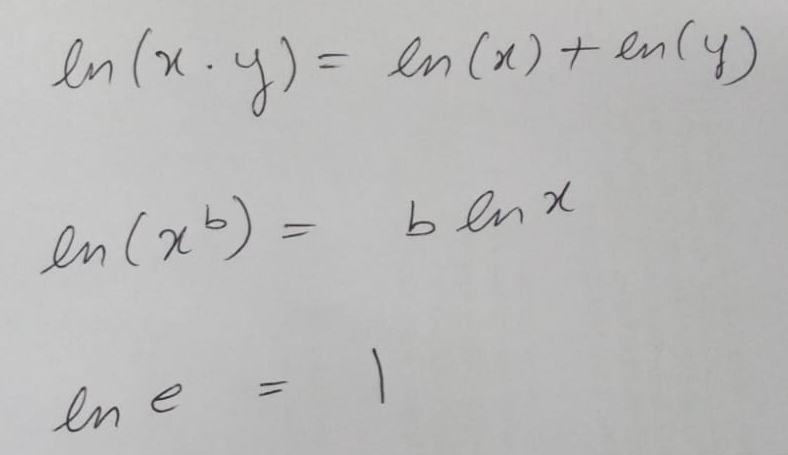 ln(x · y) = ln(x) + ln(y)
ln(x^b) = b ln x
ln e = 1